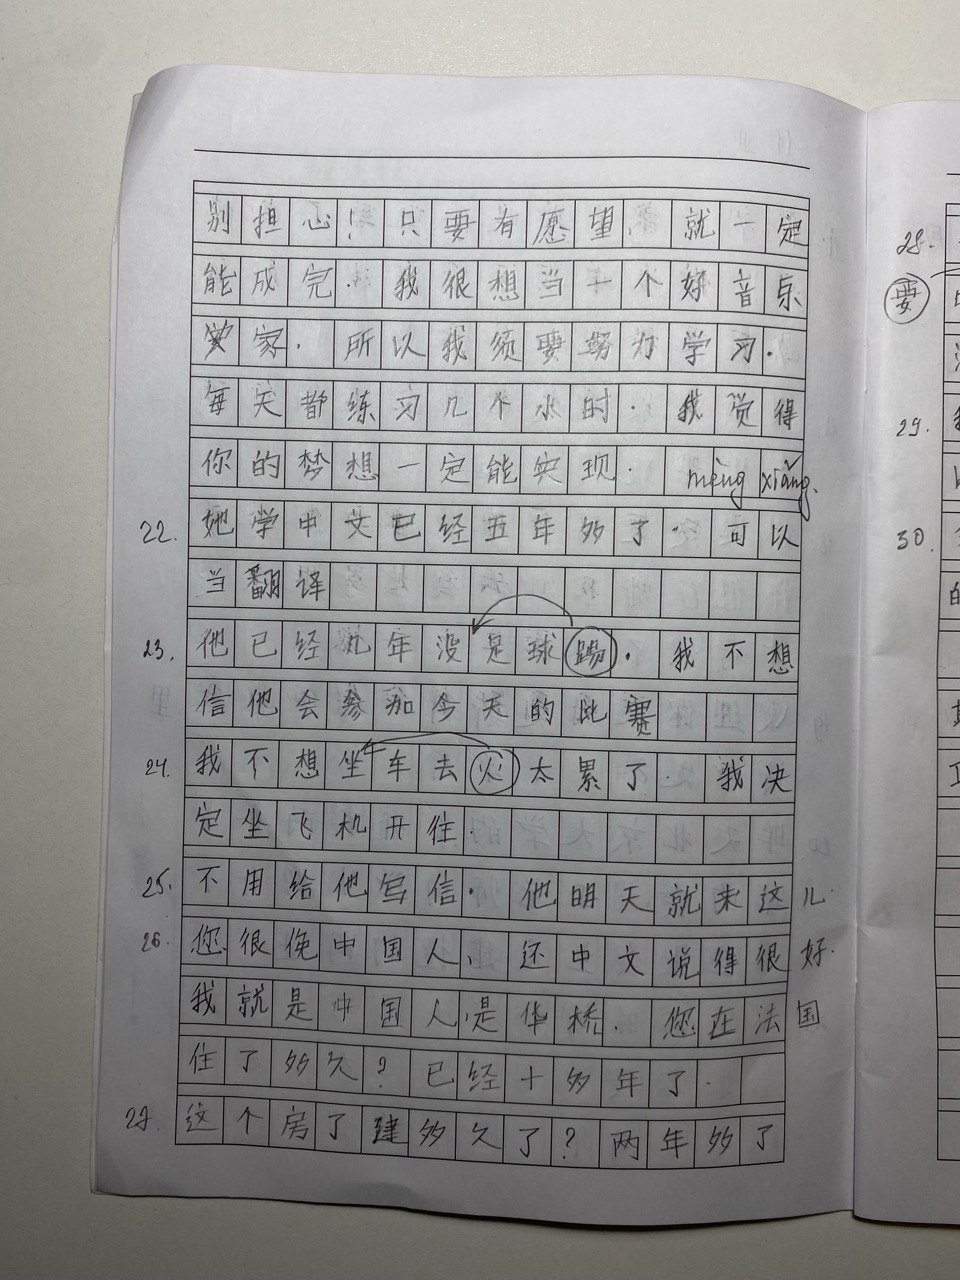 别担心！只要有愿望，就一定
能成完. 我很想当一个好音乐
家. 所以我须要努力学习.
每天都练习几个小时. 我觉得
你的梦想一定能实现. mèng xiǎng.
22. 她学中文已经五年多了. 可以
当翻译
23. 他已经几年没是球踢. 我不想
信他会参加今天的比赛
24. 我不想坐车去火太累了. 我决
定坐飞机开住.
25. 不用给他写信. 他明天就来这儿.
26. 您很像中国人、还中文说得很好.
我就是中国人,是华桥. 您在法国
住了多久? 已经十多年了.
27. 这个房了建多久了? 两年多了
28.
要
29.
30.